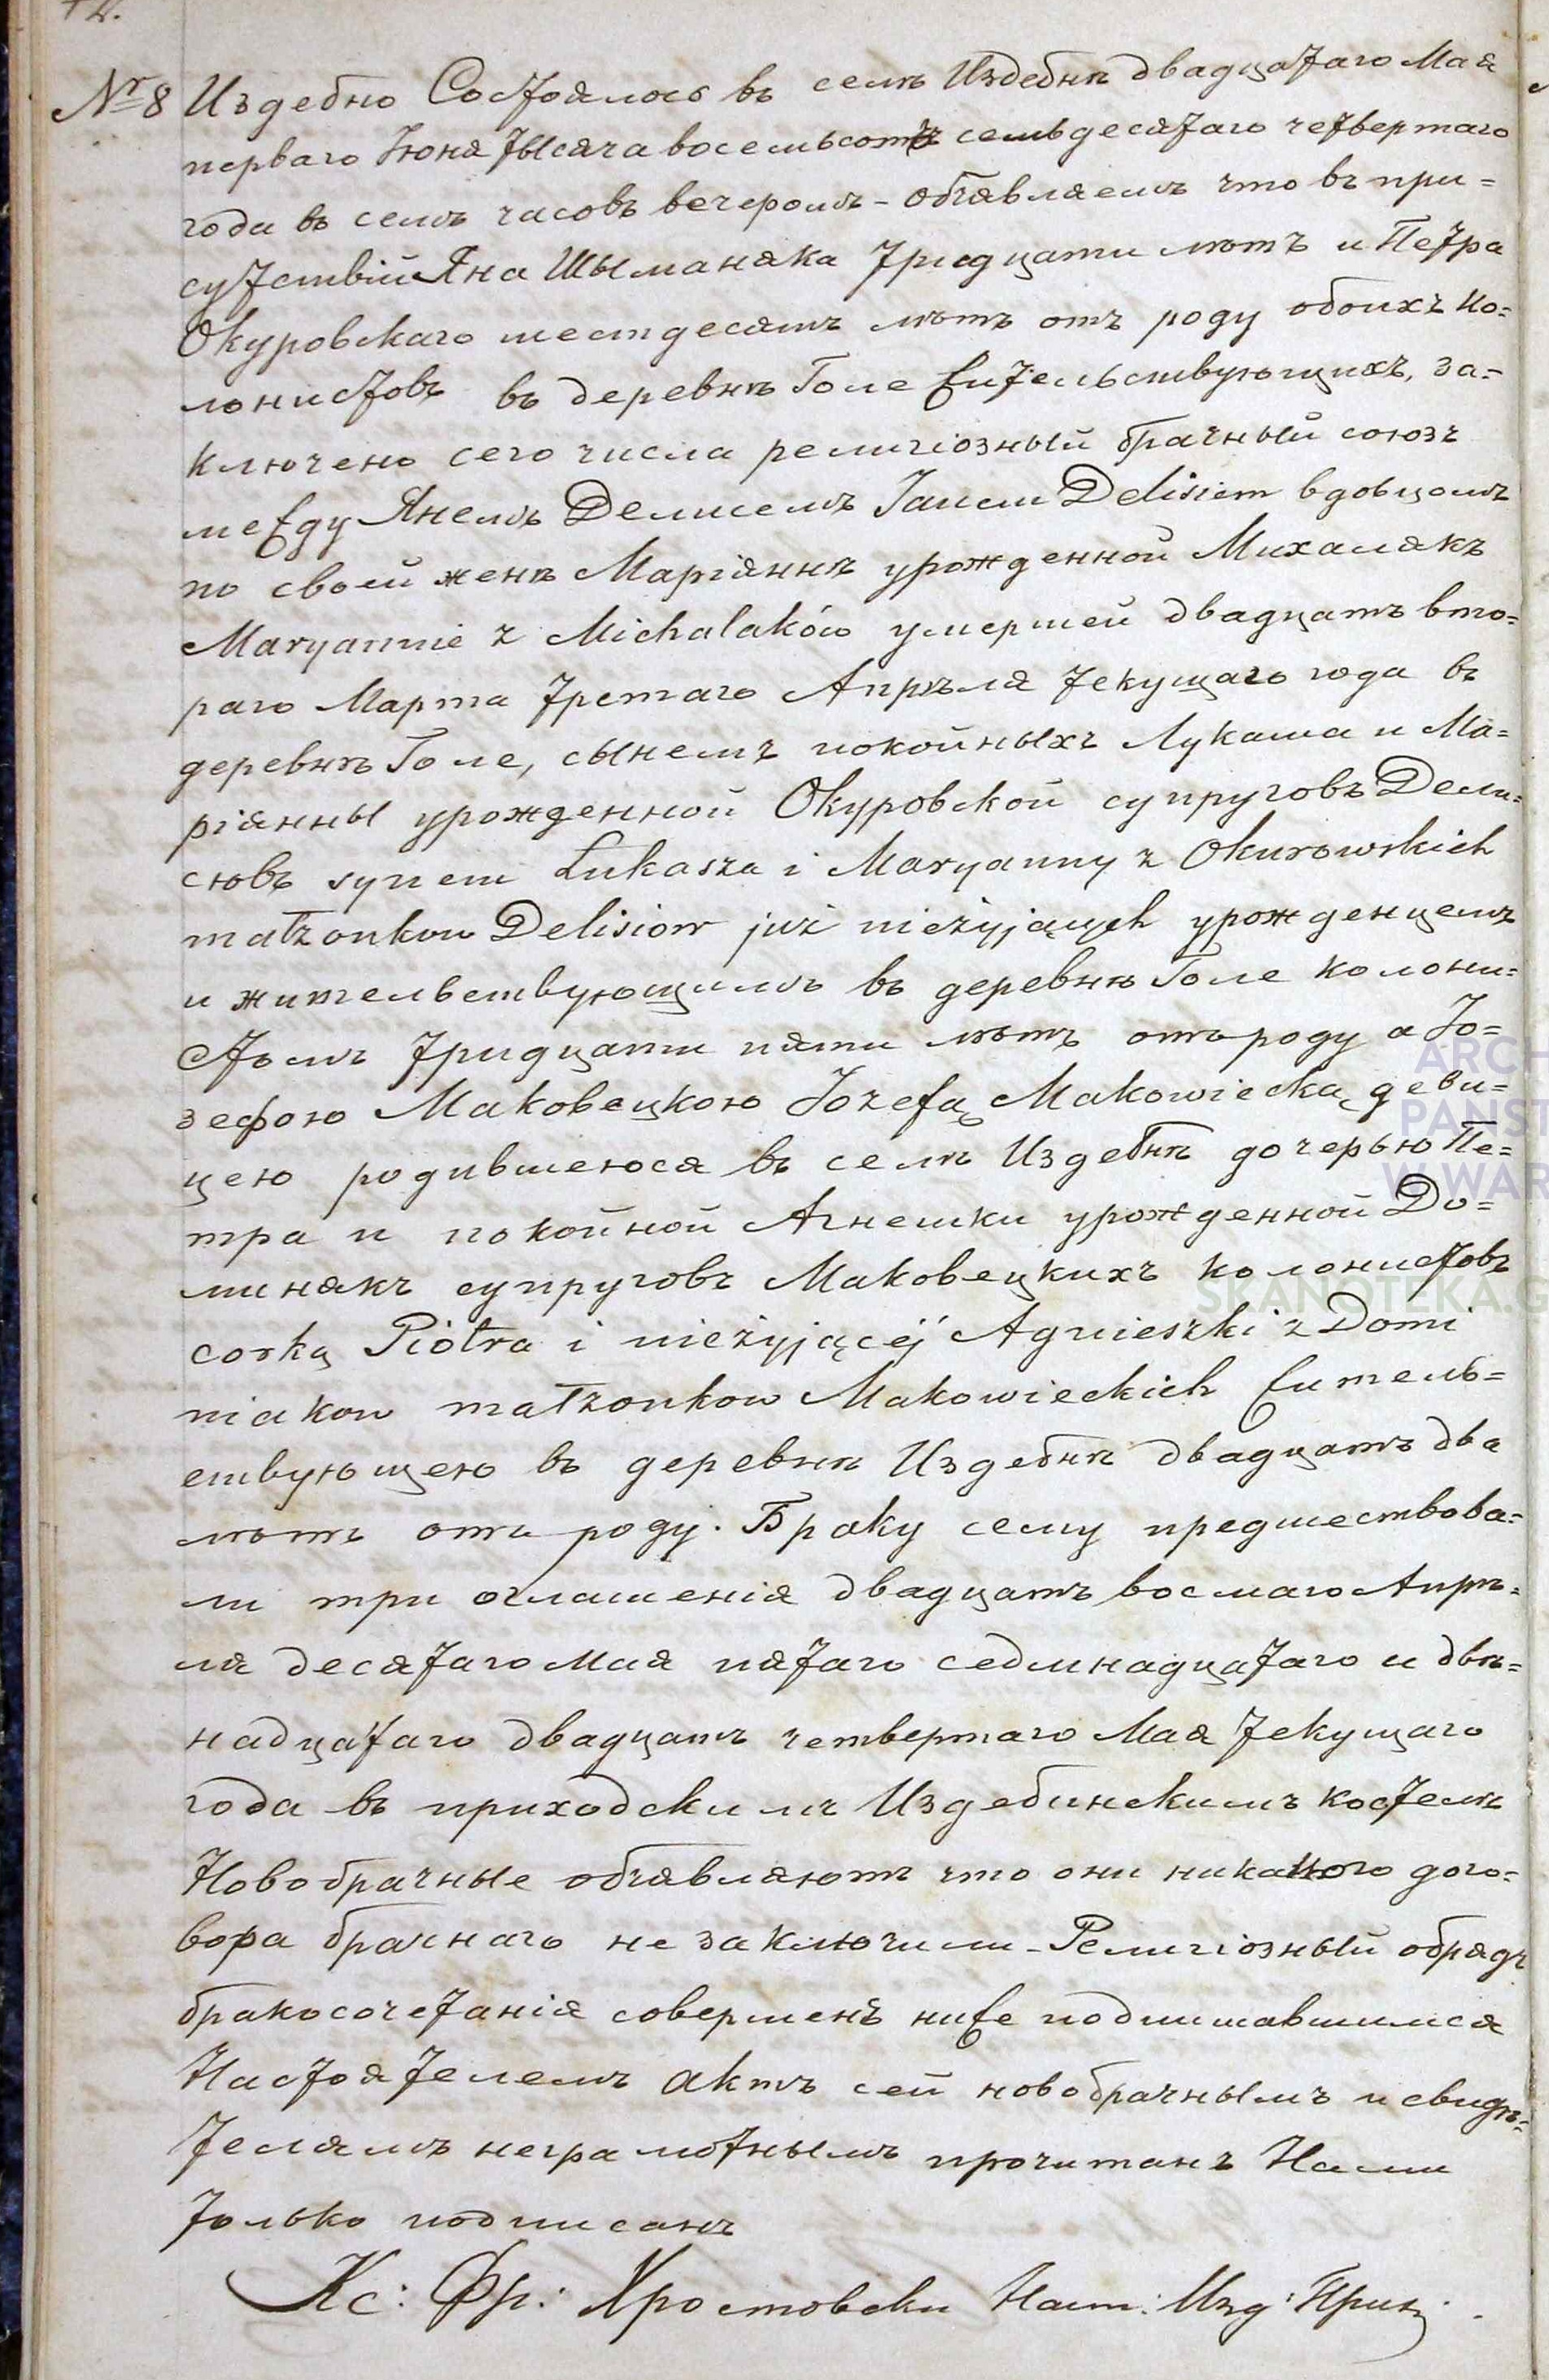 12.
№ 8 Издебно Состоялось въ селѣ Издебнѣ двадцатаго Мая
перваго Іюня тысяча восемьсотъ семьдесятаго четвертаго
года въ семъ часовъ вечеромъ - объявляемъ что въ при=
сутствій Яна Шыманяка тридцати лѣтъ и Петра
Окуровскаго шестдесятъ лѣтъ отъ роду обоихъ ко=
лонистовъ въ деревнѣ Голе жительствующихъ, за=
ключено сего числа религіозный брачный союзъ
между Янемъ Делисемъ Janem Delisiem вдовцомъ
по своей женѣ Маріяннѣ урожденной Михалякъ
Maryannie z Michalaków умершей двадцать вто=
раго Марта третаго Апрѣля текущаго года въ
деревнѣ Голе, сынемъ покойныхъ Лукаша и Ма=
ріянны урожденной Окуровской супруговъ Дели=
сювъ synem Łukasza i Maryanny z Okurowskich
małżonkow Delisiow już nieżyjących урожденцемъ
и жительствующимъ въ деревнѣ Голе колони=
стомъ тридцати пяти лѣтъ отъ роду а Іо=
зефою Маковецкою Józefą Makowiecką деви=
цею родившеюся въ селѣ Издебнѣ дочерью Пе=
тра и покойной Агнешки урожденной До=
минякъ супруговъ Маковецкихъ колонистовъ
corką Piotra i nieżyjącéj Agnieszki z Domi
niakow małżonkow Makowieckich житель=
ствующею въ деревнѣ Издебнѣ двадцать два
лѣтъ отъ роду. Браку сему предшествова=
ли три оглашенія двадцатъ восмаго Апрѣ=
ля десятаго Мая пятаго седмнадцатаго и двѣ=
надцатаго двадцатъ четвертаго Мая текущаго
года въ приходскимъ Издебинскимъ костелѣ
Новобрачные объявляютъ что они никакого дого=
вора брачнаго не заключили - Религіозный обрядъ
бракосочетанія совершенъ ниже подписавшимся
Настоятелемъ актъ сей новобрачнымъ и свидѣ=
телямъ неграмотнымъ прочитанъ Нами
только подписанъ
Кс: Фр: Хростовски Наст: Изд: Прих:
ARCH
PANST
W WAR
SKANOTEKA.G